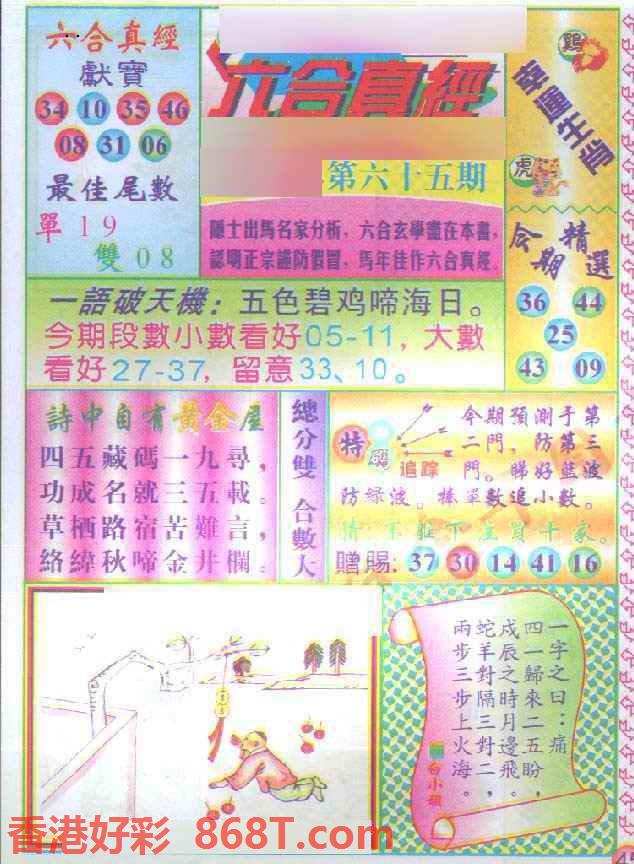 六合真經
獻寶
34 10 35 46
08 31 06
最佳尾數
單 19
雙 08
六合真經
第六十五期
隱士出馬名家分析，六合玄學盡在本書，
認明正宗謹防假冒，馬年佳作六合真經。
鷄
幸運生肖
虎
今期精選
36 44
25
43 09
一語破天機：五色碧鸡啼海日。
今期段數小數看好05-11，大數
看好27-37，留意33、10。
詩中自有黃金屋
四五藏碼一九尋，
功成名就三五載。
草栖路宿苦難言，
絡緯秋啼金井欄。
總分雙 合數大
特碼
追踪
今期預測于第
二門，防第三
門。睇好藍波
防緑波。捧單數追小數。
猜不莊下注買十家。
贈賜：37 30 14 41 16
一字之曰：痛
四一歸來二五盼，
戌辰之時月邊飛。
蛇羊對隔三對二，
兩步三步上火海。
香港好彩 868T.com